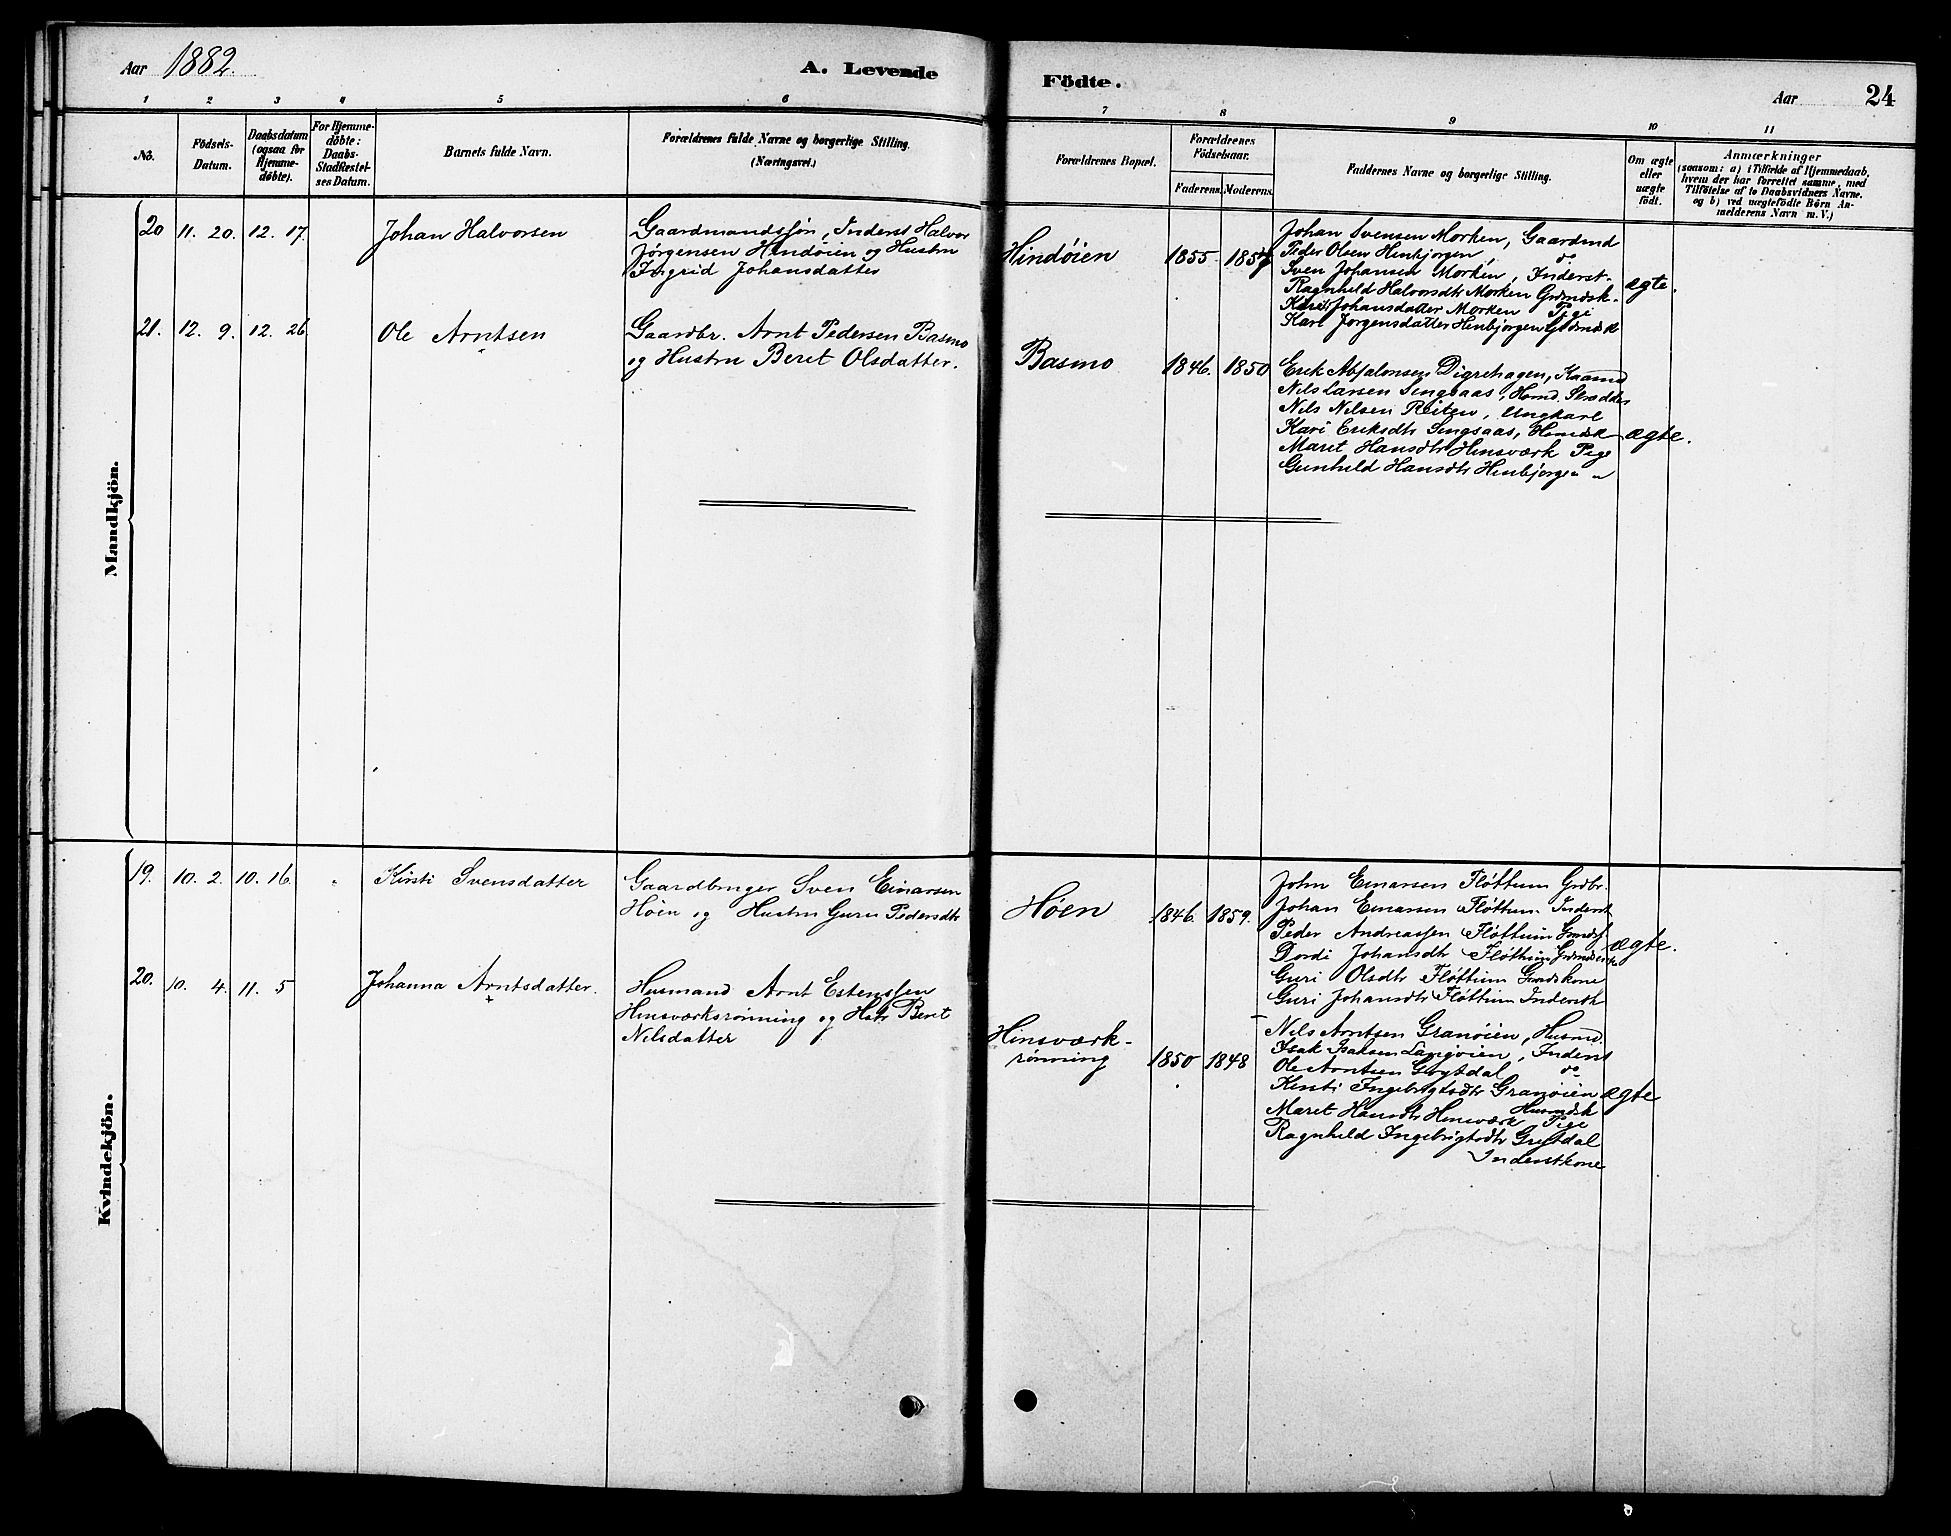 Aar 1882.
A. Levende
Födte.
Aar
24
1 2 3 4 5 6 7 8 9 10 11
No.
Födsels-
Datum.
Daabsdatum
(ogsaa for
Hjemme-
döbte).
For Hjemme-
döbte:
Daabs-
Stadfæstel-
ses Datum.
Barnets fulde Navn.
Forældrenes fulde Navne og borgerlige Stilling.
(Næringsvei.)
Forældrenes Bopæl.
Forældrenes
Födselsaar.
Faderens. Moderens.
Faddernes Navne og borgerlige Stilling.
Om ægte
eller
uægte
födt.
Anmærkninger
(saasom: a) i Tilfælde af Hjemmedaab,
hvem der har forrettet samme, med
Tilföielse af to Daabsvidners Navne.
og b) ved uægtefödte Börn An-
melderens Navn m. V.)
Mandkjön.
20 11. 20. 12. 17.
Johan Halvorsen
Gaardmandssøn, Inderst Halvor
Jørgensen Hindøien og Hustru
Ingrid Johansdatter
Hindøien
1855
Johan Svensen Morken, Gaardmd
Peder Olsen Henbjorgen, do
Sven Johansen Morken, Inderst
Ragnhild Halvorsdtr Morken Grdmdsk.
Kari Johansdatter Morken Pige
Kari Jørgensdatter Henbjorgen Grdmdsk
ægte.
21. 12. 9. 12. 26
Ole Arntsen
Gaardbr. Arnt Pedersen Basmo
og Hustru Beret Olsdatter.
Basmo
1846. 1850
Erik Absalonsen Digrehagen, Kaarmd
Nils Larsen Singsaas, Husmd. Skrædder
Nils Nilsen Reiten, Ungkarl
Kari Eriksdtr Singsaas, Husmdsk
Maret Hansdtr Hinsværk Pige
Gunhild Hansdtr Henbjorgen "
ægte.
Kvindekjön.
19. 10. 2. 10. 16.
Kirsti Svensdatter
Gaardbruger Sven Einarsen
Höen og Hustru Guru Pedersdtr
Höen
1846. 1859.
John Einarsen Fløttum Grdbr.
Johan Einarsen Fløttum Inderst
Peder Andreassen Fløttum
Dordi Johansdtr Fløttum
Guri Olsdtr Fløttum Grmdskone
Guri Johansdtr Fløttum Inderstk
ægte.
20. 10. 4. 11. 5
Johanna Arntsdatter.
Husmand Arnt Estenssen
Hinsværksrønning og Hstr Beret
Nilsdatter
Hinsværk-
rønning
1850 1848
Nils Arntsen Granøien, Husmd.
Isak Isaksen Langøien, Inderst
Ole Arntsen Grytdal do
Kirsti Ingebrigtsdtr Granøien
Husmdsk
Maret Hansdtr Hinsværk Pige
Ragnhild Ingebrigtsdtr Grytdal
Inderstkone
ægte